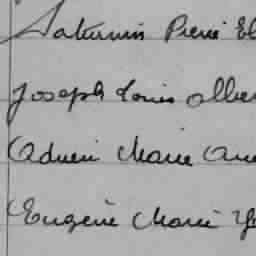 Saturnin Pierre El
Joseph Louis Alber
Adrien Marie Au
Eugène Marie Y